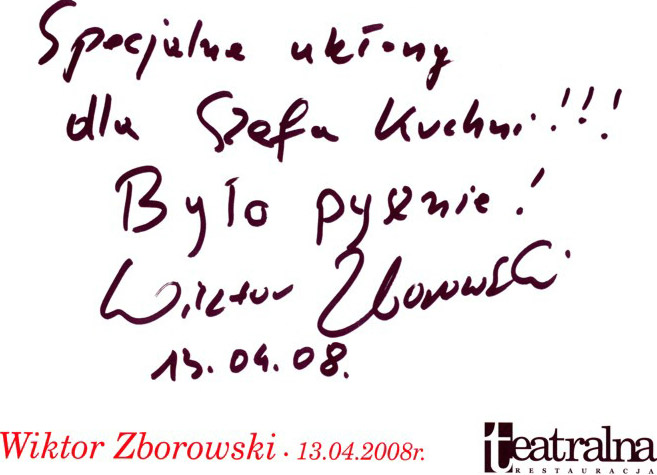 Specjalne ukłony
dla Szefa Kuchni!!!
Było pysznie!
Wiktor Zborowski
13.04.08.
Wiktor Zborowski · 13.04.2008r.
teatralna
RESTAURACJA